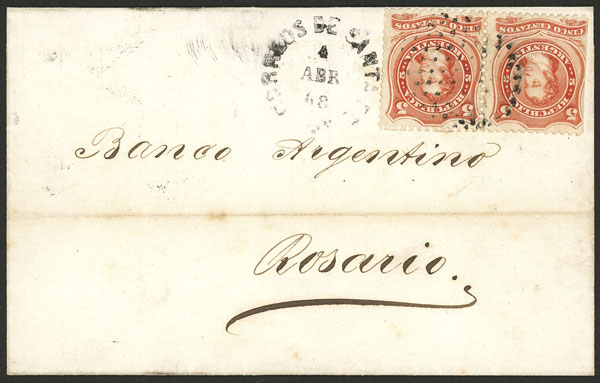 CORREOS DE SANTA
4
ABR
68
REPUBLICA ARGENTINA
5 5
CINCO CENTAVOS
REPUBLICA ARGENTINA
5 5
CINCO CENTAVOS
Banco Argentino
Rosario.